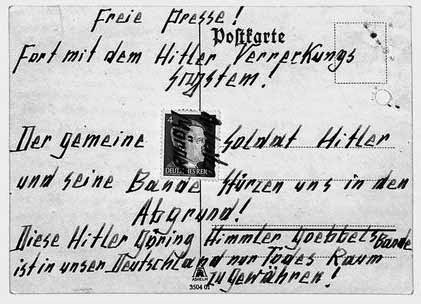 Freie Presse!
Postkarte
Fort mit dem Hitler Verreckungs
system.
Der gemeine Soldat Hitler
und seine Bande stürzen uns in den
Abgrund!
Diese Hitler Göring Himmler Goebbels Bande
ist in unser Deutschland nur Todes Raum
zu gewähren!
3504 01